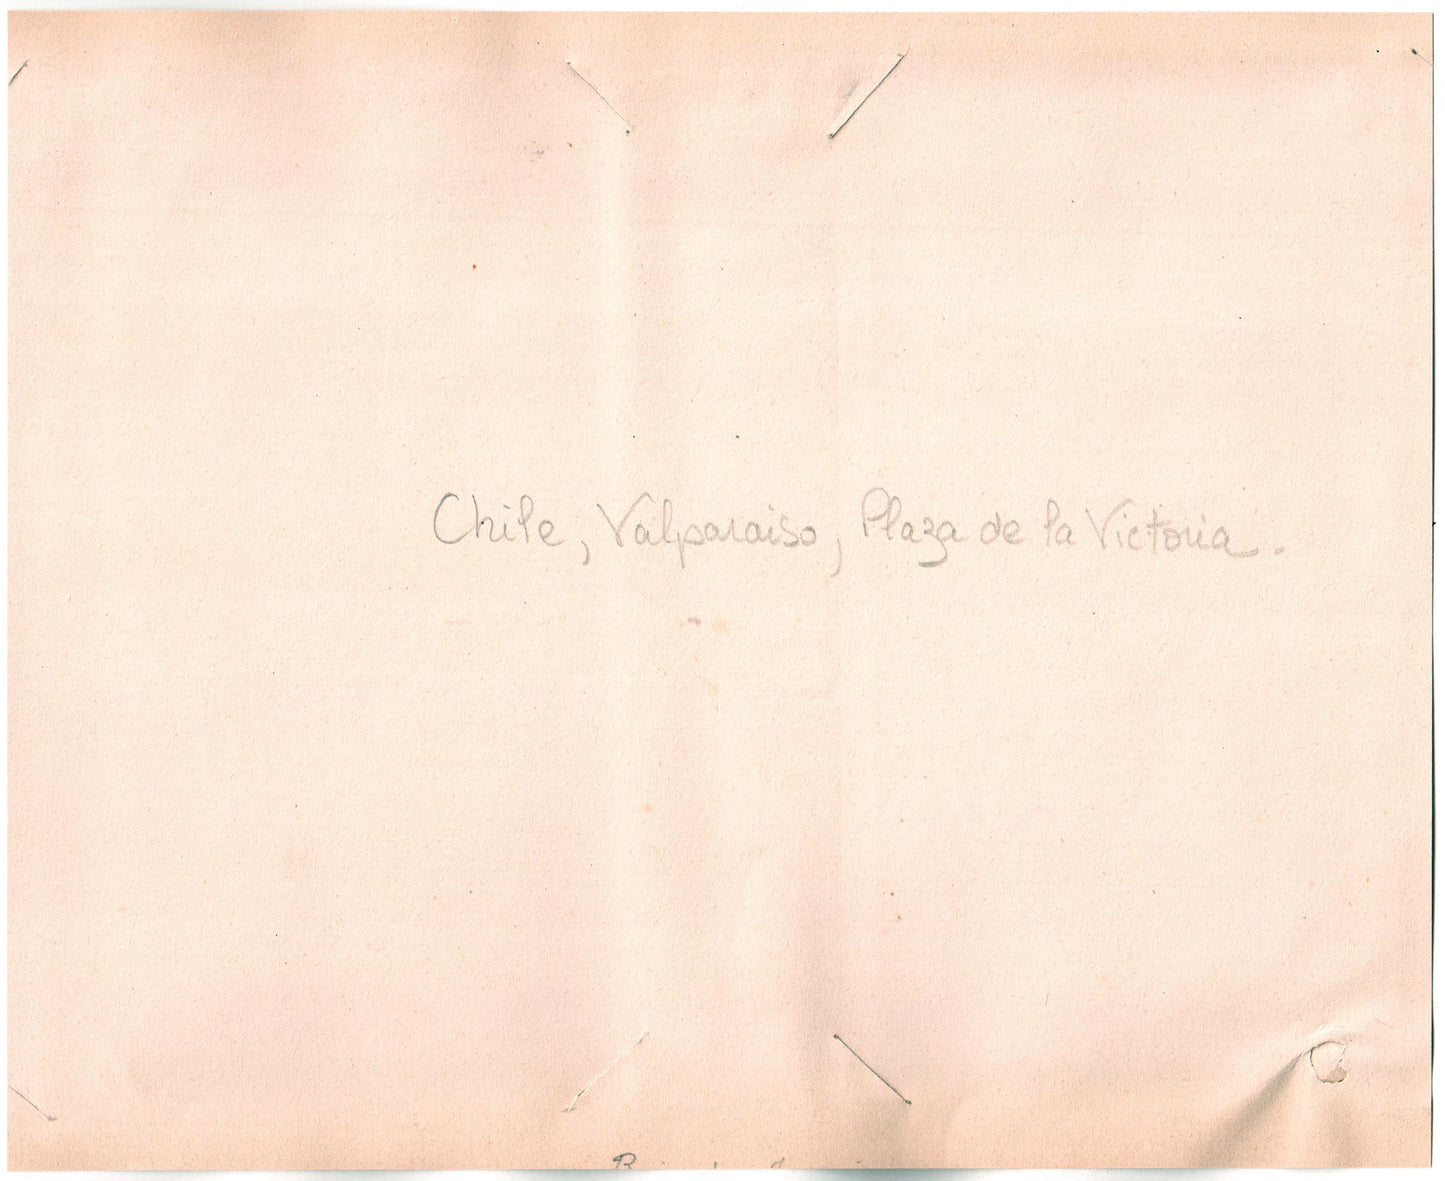 Chile, Valparaiso, Plaza de la Victoria.